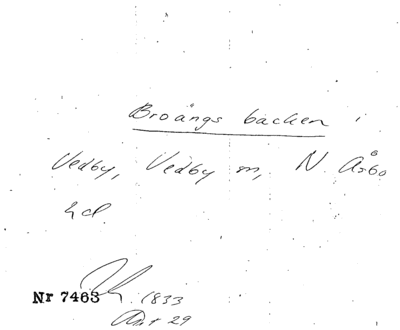 Broängs backen i
Vedby, Vedby m, N Åsbo
hd.
Nr 7463 1833
Akt 29